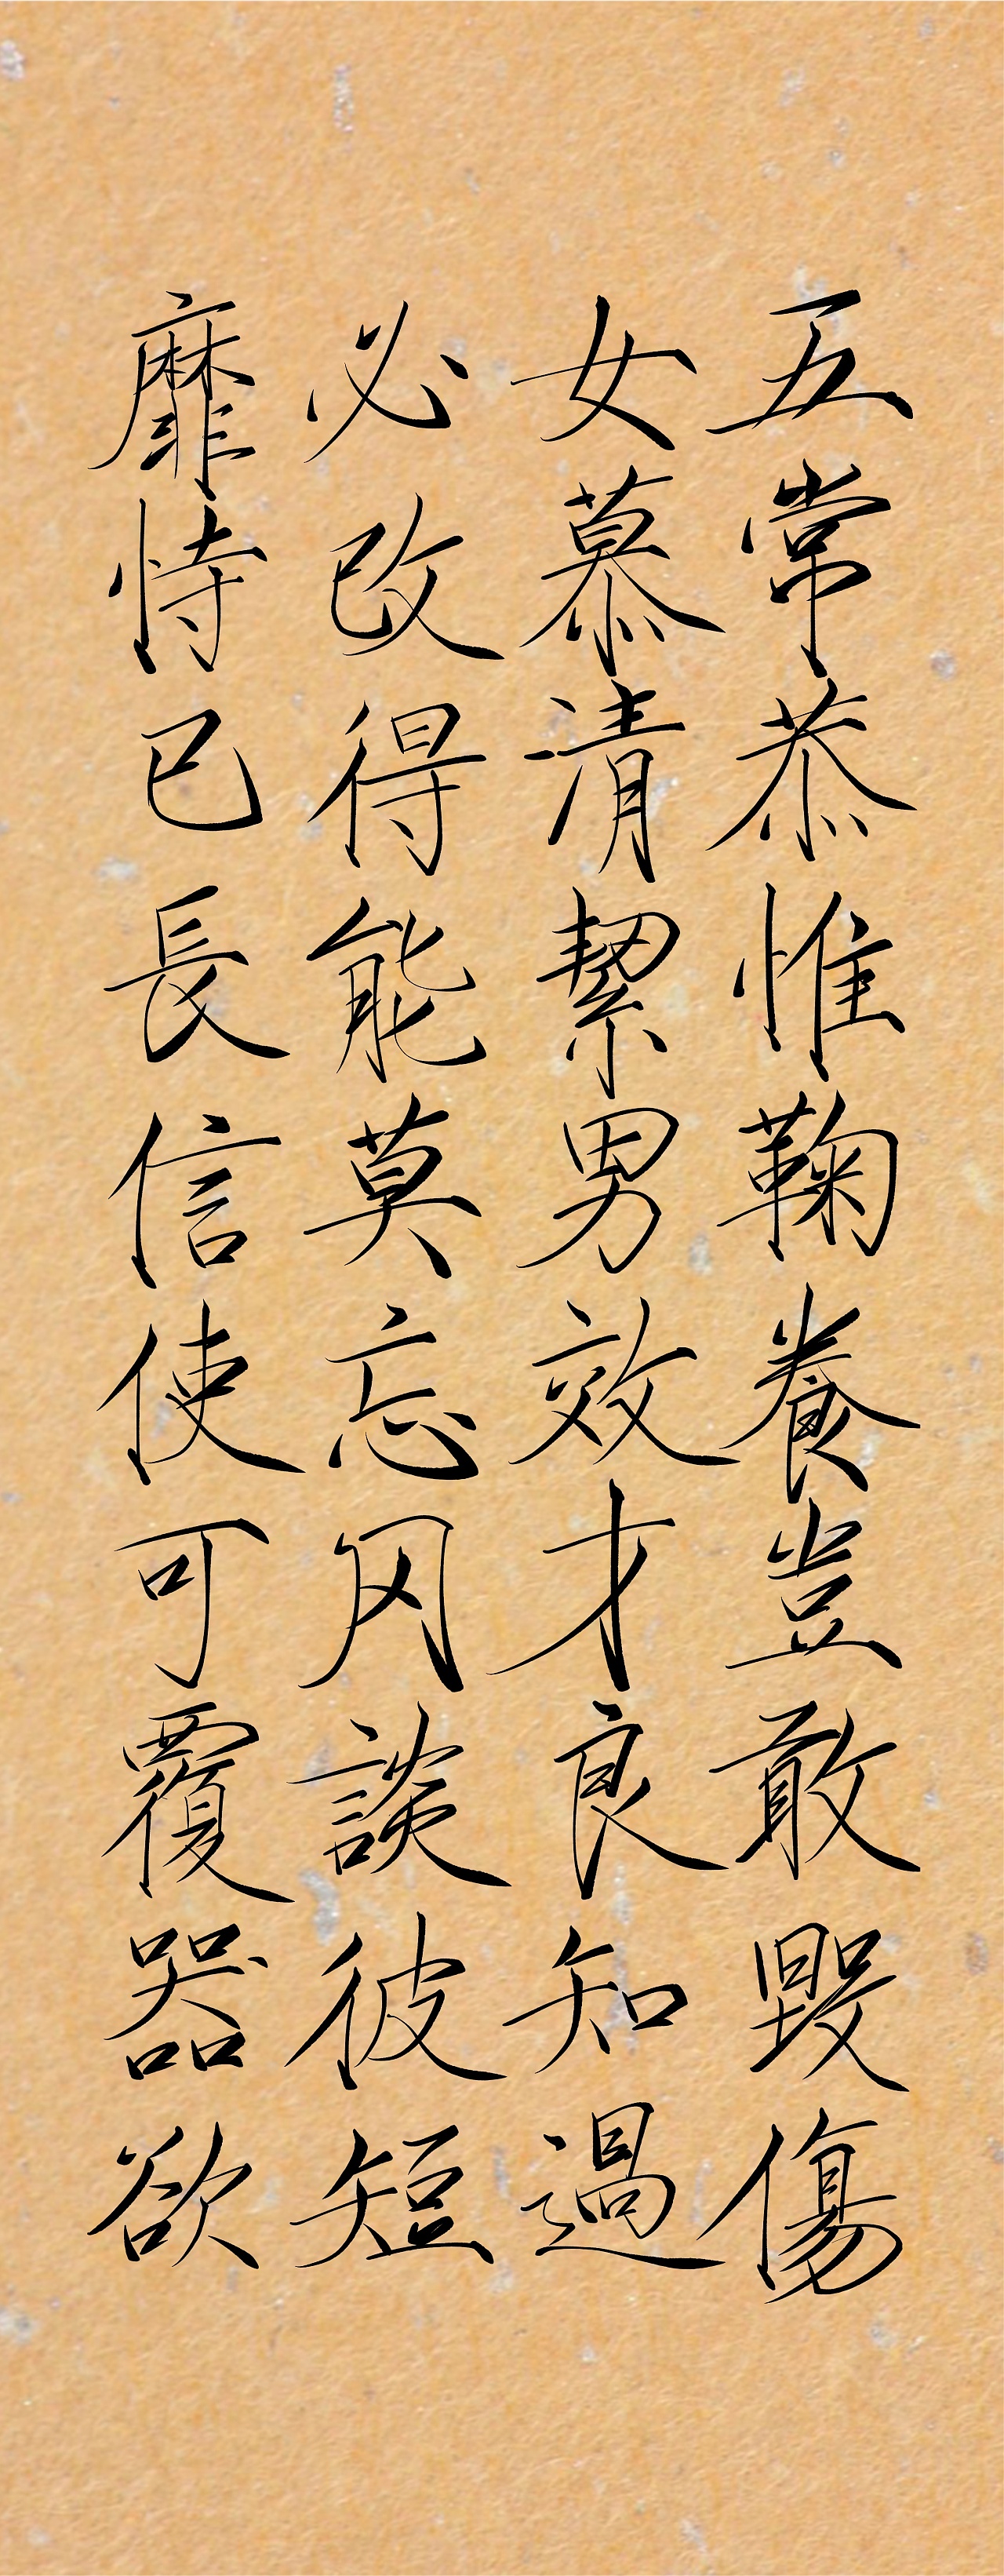 五常恭惟鞠養豈敢毀傷
女慕清絜男效才良知過
必改得能莫忘罔談彼短
靡恃已長信使可覆器欲